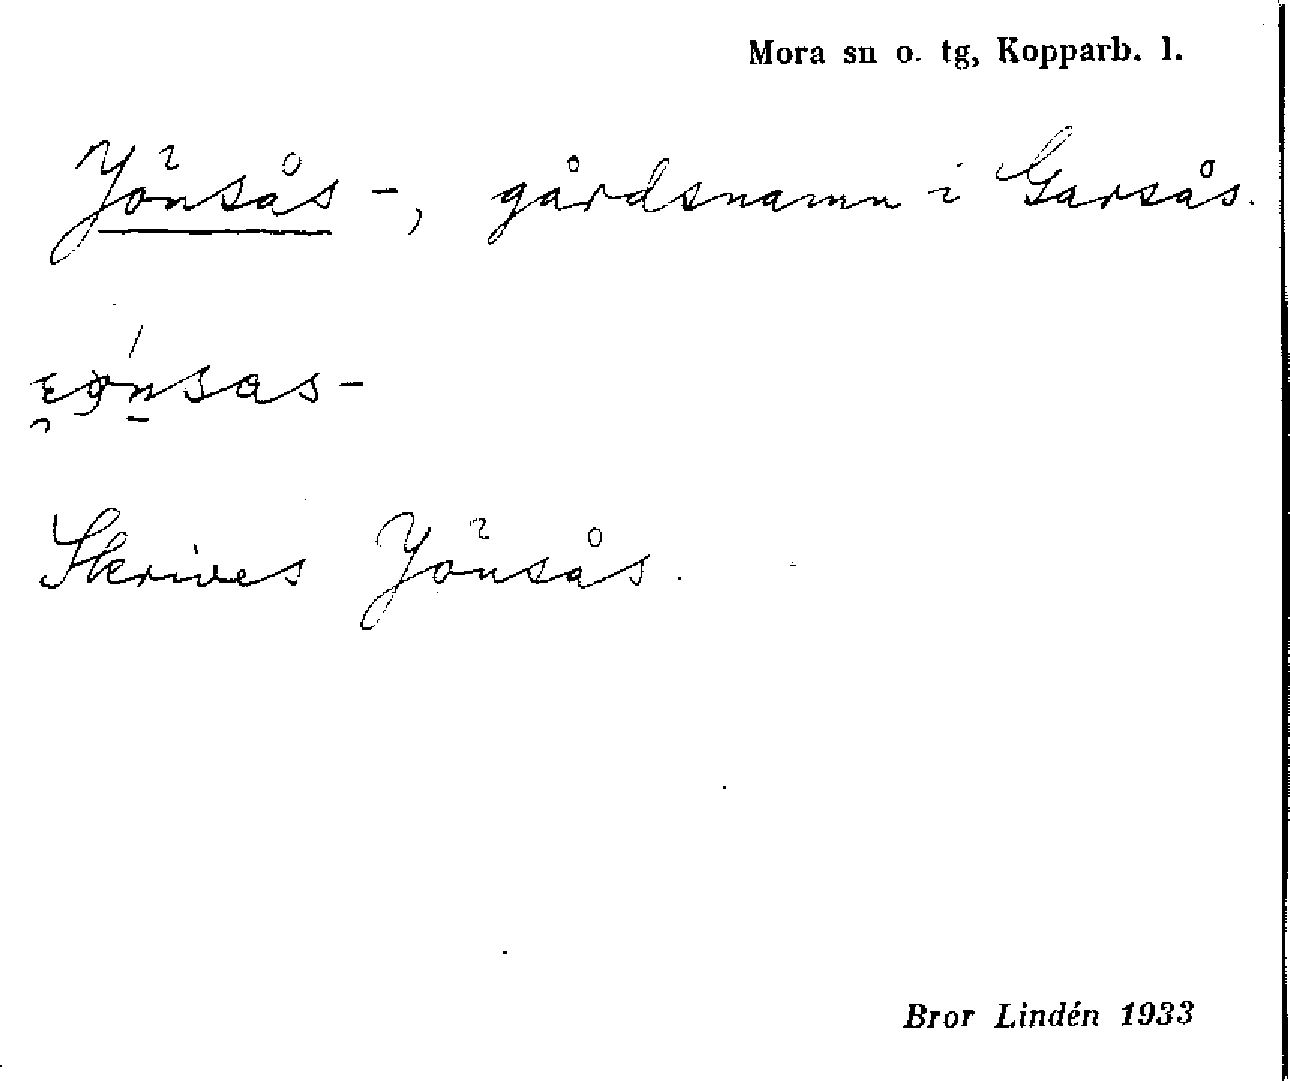 Mora sn o. tg, Kopparb. l.
Jönsås-, gårdsnamn i Garsås.
Skrives Jönsås.
Bror Lindén 1933